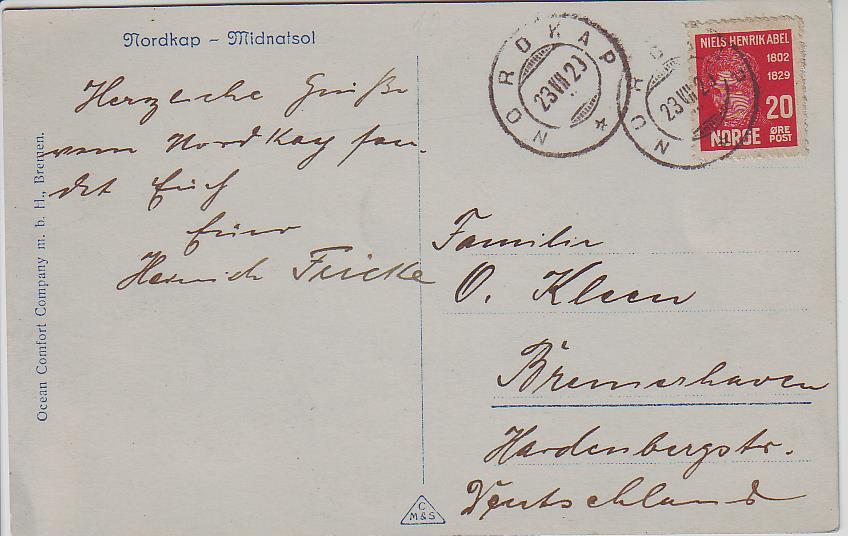 Nordkap - Midnatsol
Herzliche Grüße
vom Nordkap sen-
det Euch
Euer
Heinrich Fricke
Ocean Comfort Company m. b. H., Bremen.
NORDKAP
23 VII 29
NORDKAP
23 VII 29
NIELS HENRIK ABEL
1802
1829
20
NORGE ØRE
POST
Familie
O. Kleen
Bremerhaven
Hardenbergstr.
Deutschland
C
M&S